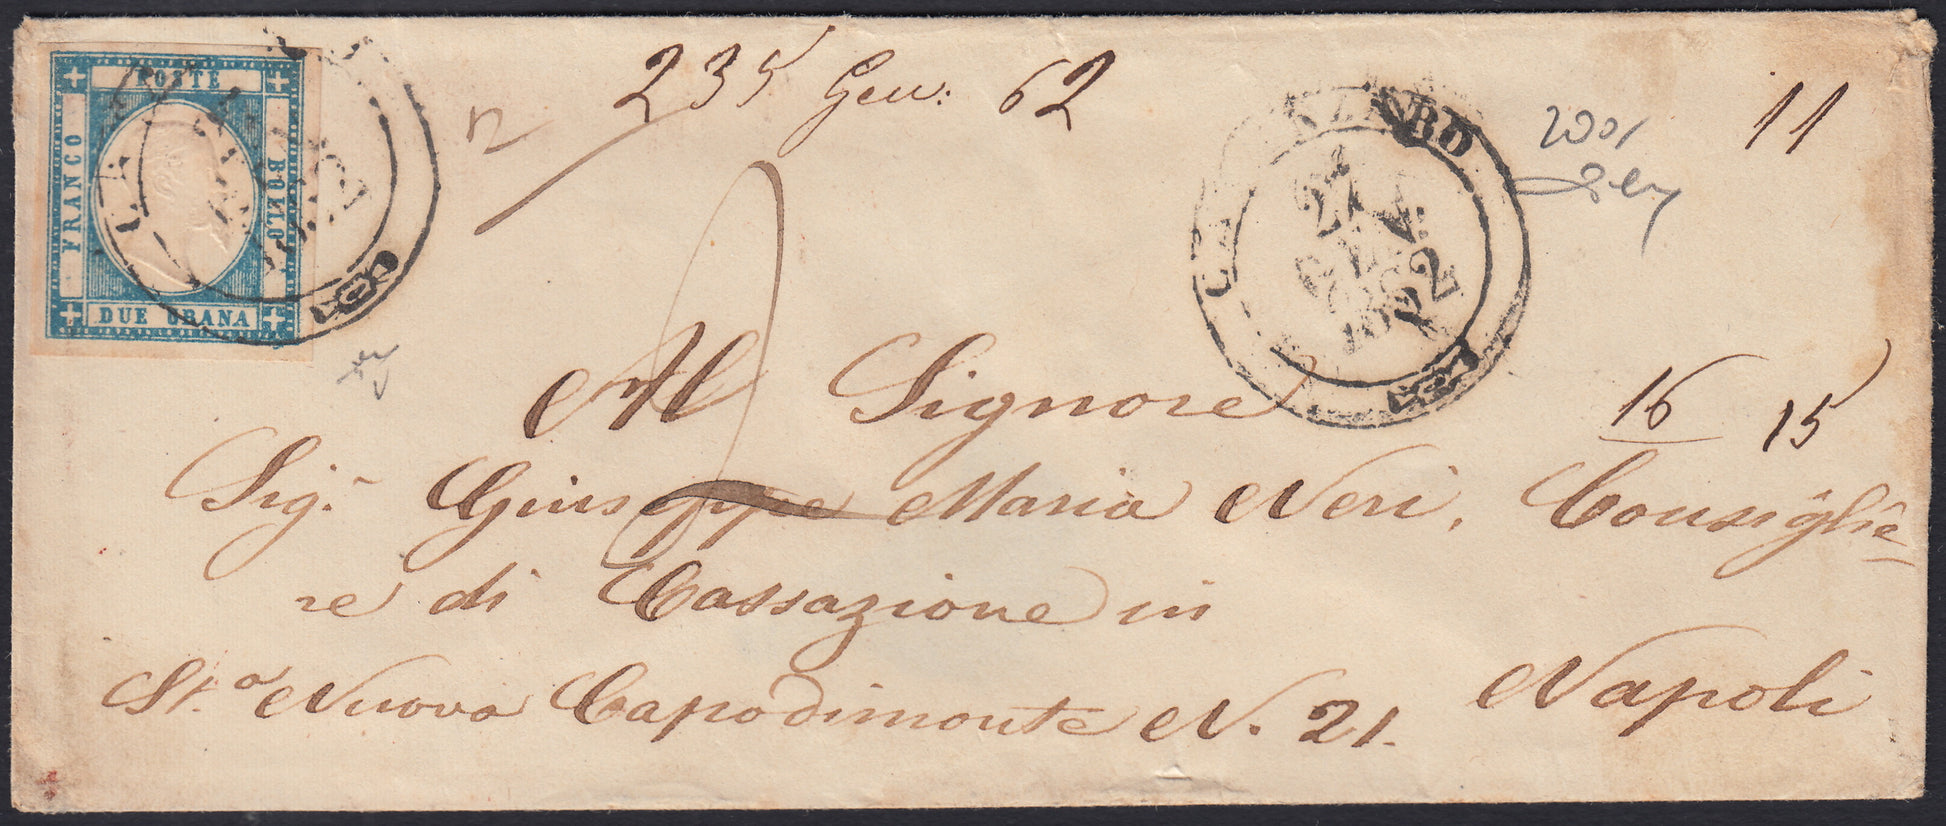 POSTE
FRANCO
BOLLO
DUE GRANA
235 Gen: 62
11
27
1862
Al Signore
16 15
Sig.r Giuseppe Maria Neri, Consiglie=
re di Cassazione in
St.a Nuova Capodimonte N. 21. Napoli